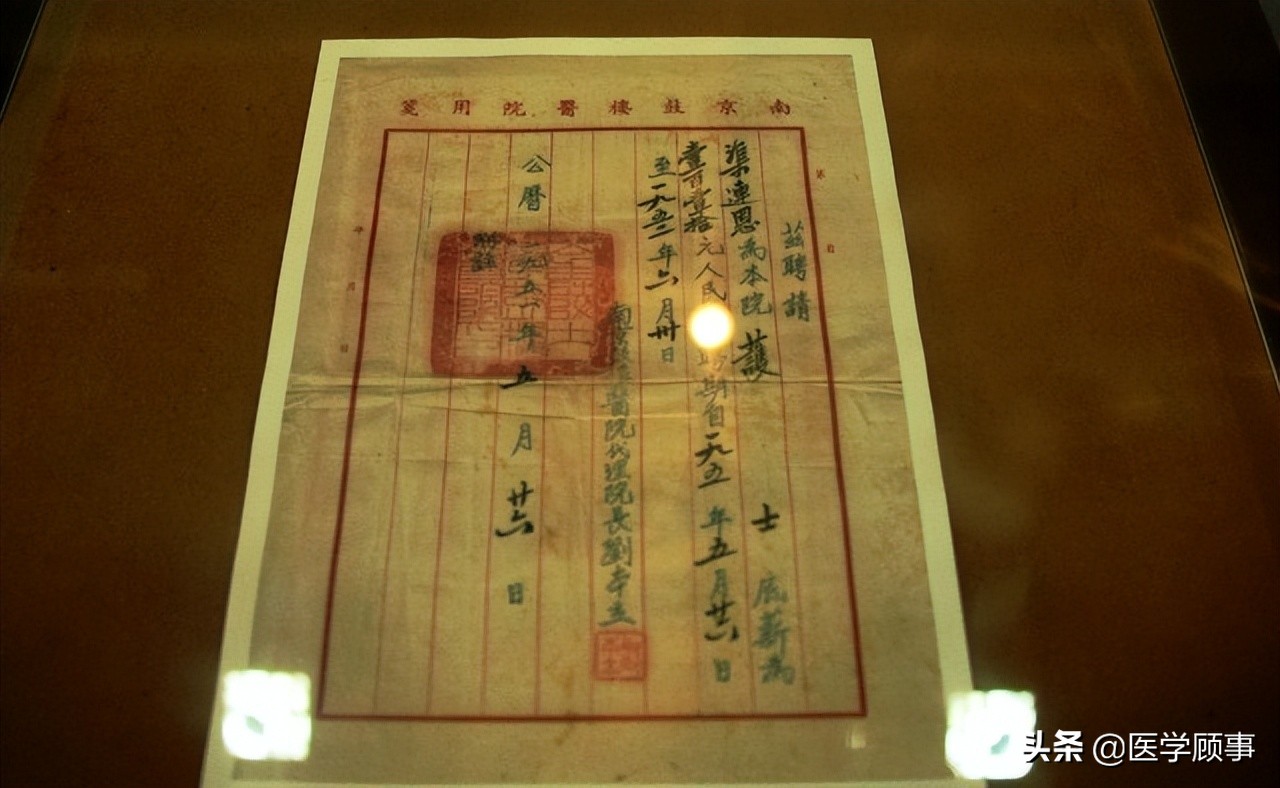 南京鼓樓醫院用箋
第 頁
茲聘請
渠連恩為本院護士底薪為
壹百壹拾元人民 期自一九五 年五月廿六日
至一九五二年六月卅日
南京鼓樓醫院代理院長劉本立
公曆一九五一年五月廿六日
年 月 日
头条 @医学顾事